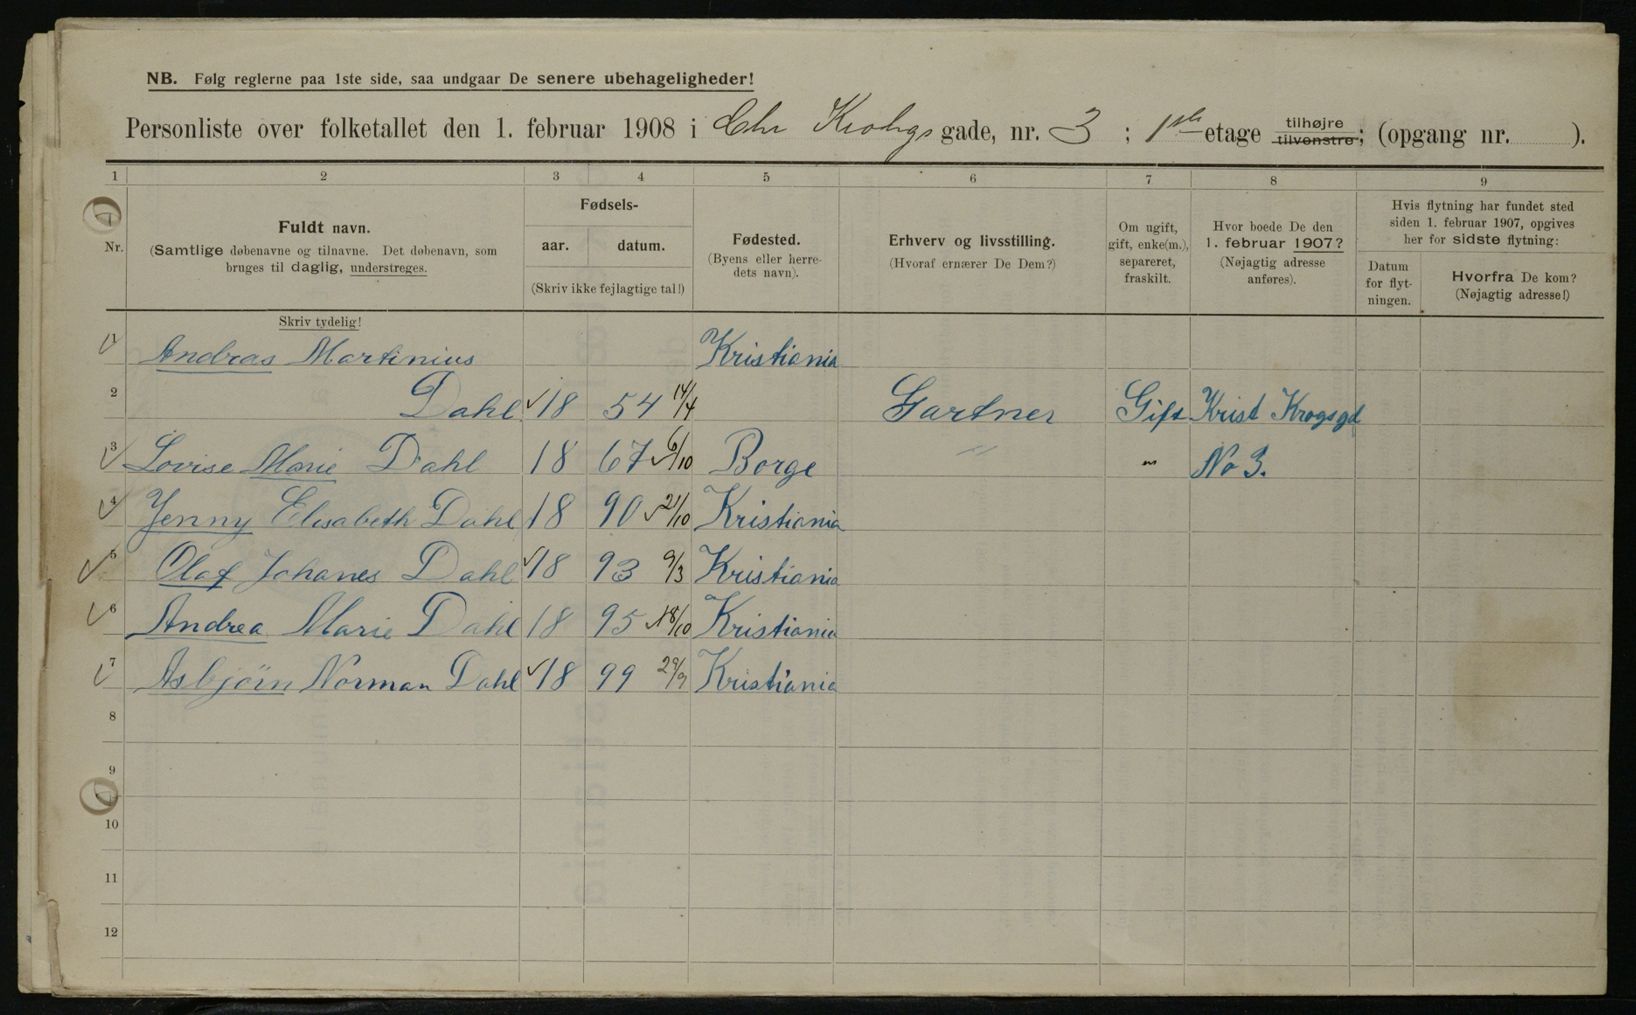 NB. Følg reglerne paa 1ste side, saa undgaar De senere ubehageligheder!
Personliste over folketallet den 1. februar 1908 i Chr Krohgs gade, nr. 3 ; 1ste etage tilhøjre tilvenstre; (opgang nr. ).
1 2 3 4 5 6 7 8 9
Nr.
Fuldt navn.
(Samtlige døbenavne og tilnavne. Det døbenavn, som
bruges til daglig, understreges.
Fødsels-
aar. datum.
(Skriv ikke fejlagtige tal!)
Fødested.
(Byens eller herre-
dets navn).
Erhverv og livsstilling.
(Hvoraf ernærer De Dem?)
Om ugift,
gift, enke(m.),
separeret,
fraskilt.
Hvor boede De den
1. februar 1907?
(Nøjagtig adresse
anføres).
Hvis flytning har fundet sted
siden 1. februar 1907, opgives
her for sidste flytning:
Datum
for flyt-
ningen.
Hvorfra De kom?
(Nøjagtig adresse!)
Skriv tydelig!
1 Andras Martinius Kristiania
2 Dahl 18 54 14/4 Gartner Gift Krist Krogsgd
3 Lovise Marie Dahl 18 67 6/10 Borge " " No 3.
4 Yenny Elisabeth Dahl 18 90 21/10 Kristiania
5 Olaf Johanes Dahl 18 93 9/3 Kristiania
6 Andrea Marie Dahl 18 95 18/10 Kristiania
7 Asbjörn Norman Dahl 18 99 29/9 Kristiania
8
9
10
11
12